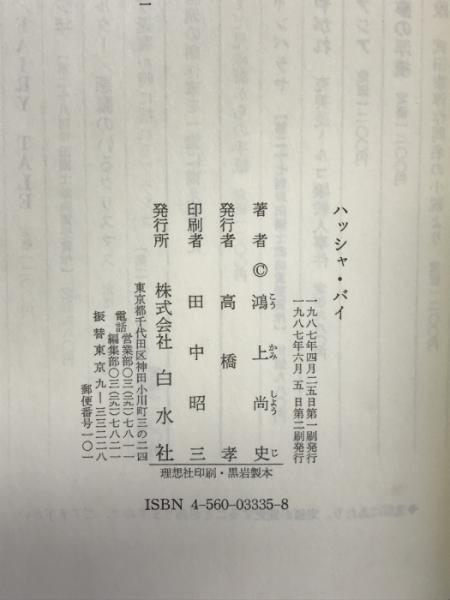 ハッシャ・バイ
一九八七年四月二五日第一刷発行
一九八七年六月 五 日第二刷発行
著者 © 鴻上尚史
こう かみ しよう じ
発行者 高橋孝
印刷者 田中昭三
発行所 株式会社 白水社
東京都千代田区神田小川町三の二四
電話 営業部〇三(二九一)七八一一
編集部〇三(二九一)七八二一
振替 東京 九―三三二二八
郵便番号 一〇一
理想社印刷・黒岩製本
ISBN 4-560-03335-8